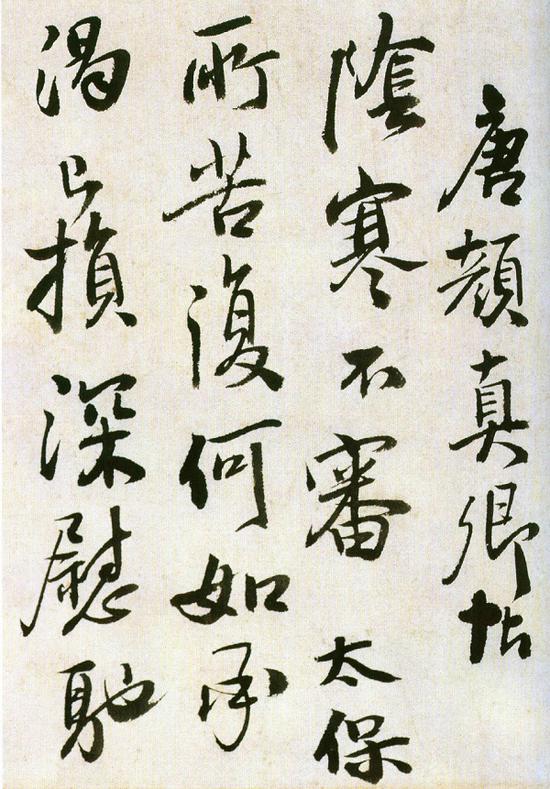 唐顔真卿帖
陰寒不審 太保
所苦復何如承
渴已損深慰馳